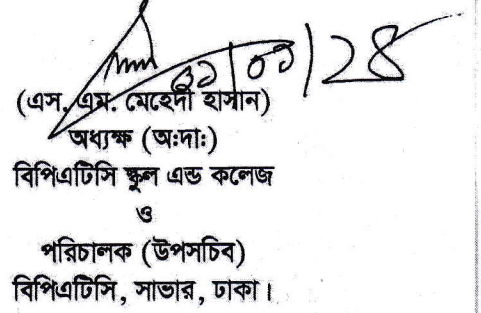 ৩১/০১/২৪
(এস. এম. মেহেদী হাসান)
অধ্যক্ষ (অ:দা:)
বিপিএটিসি স্কুল এন্ড কলেজ
ও
পরিচালক (উপসচিব)
বিপিএটিসি, সাভার, ঢাকা।